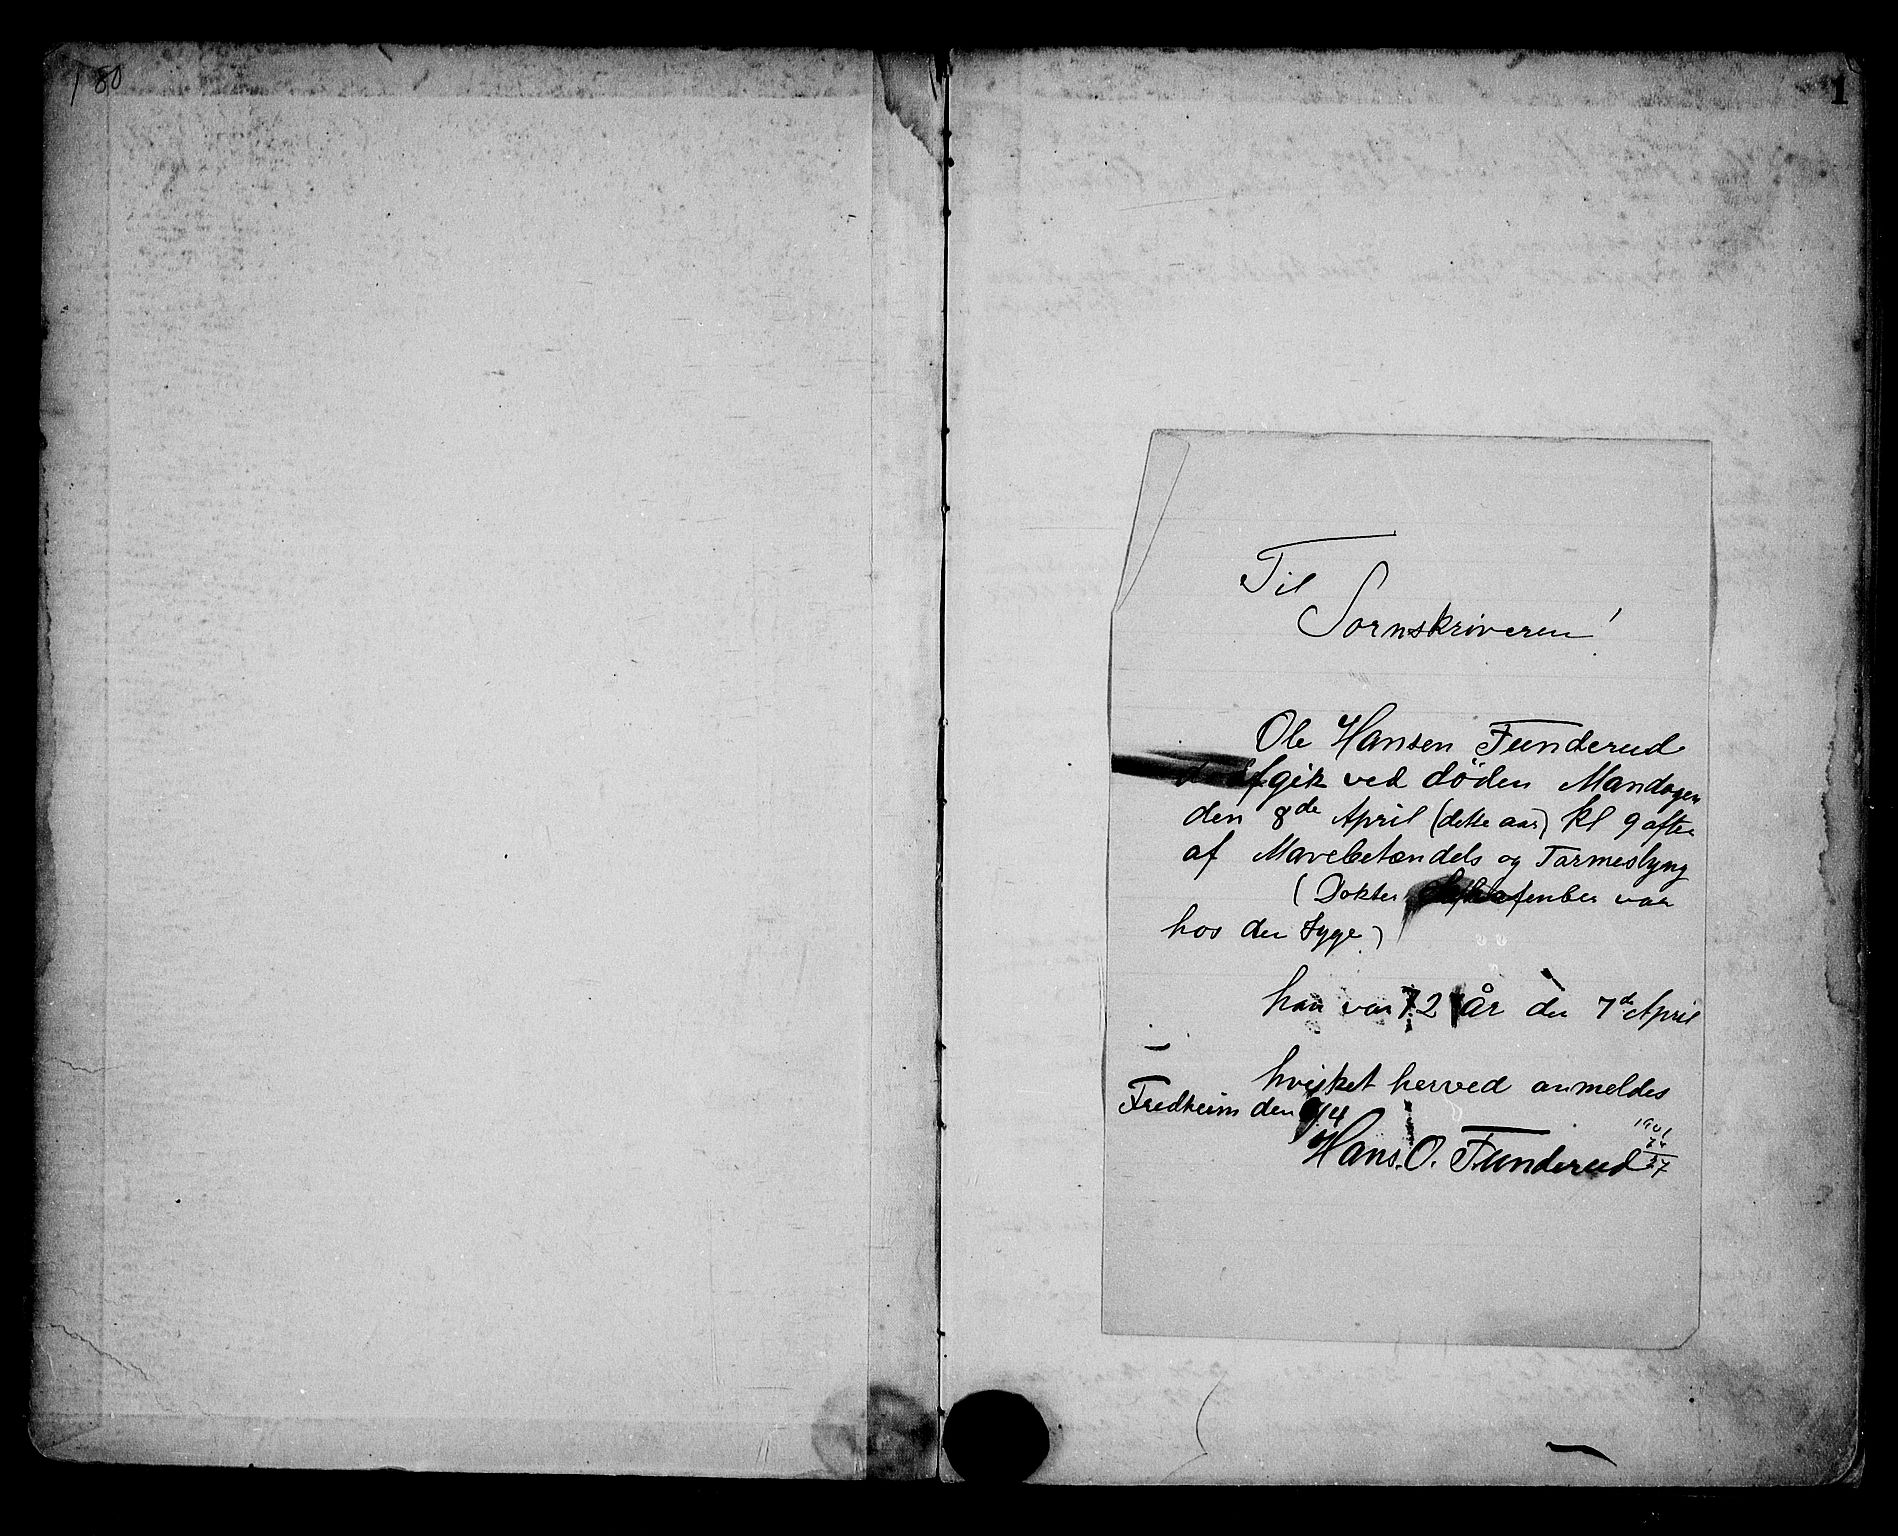 180
1
Til
Sornskriveren!
Ole Hansen Funderud
afgik ved døden Mandagen
den 8de April (dette aar) kl 9 aften
af Mavebetændels og Tarmeslyng
(Dokter var
hos den Syge)
han var 72 År den 7de April
hvilket herved anmeldes
Fredheim den 9/4
Hans. O. Funderud
1901